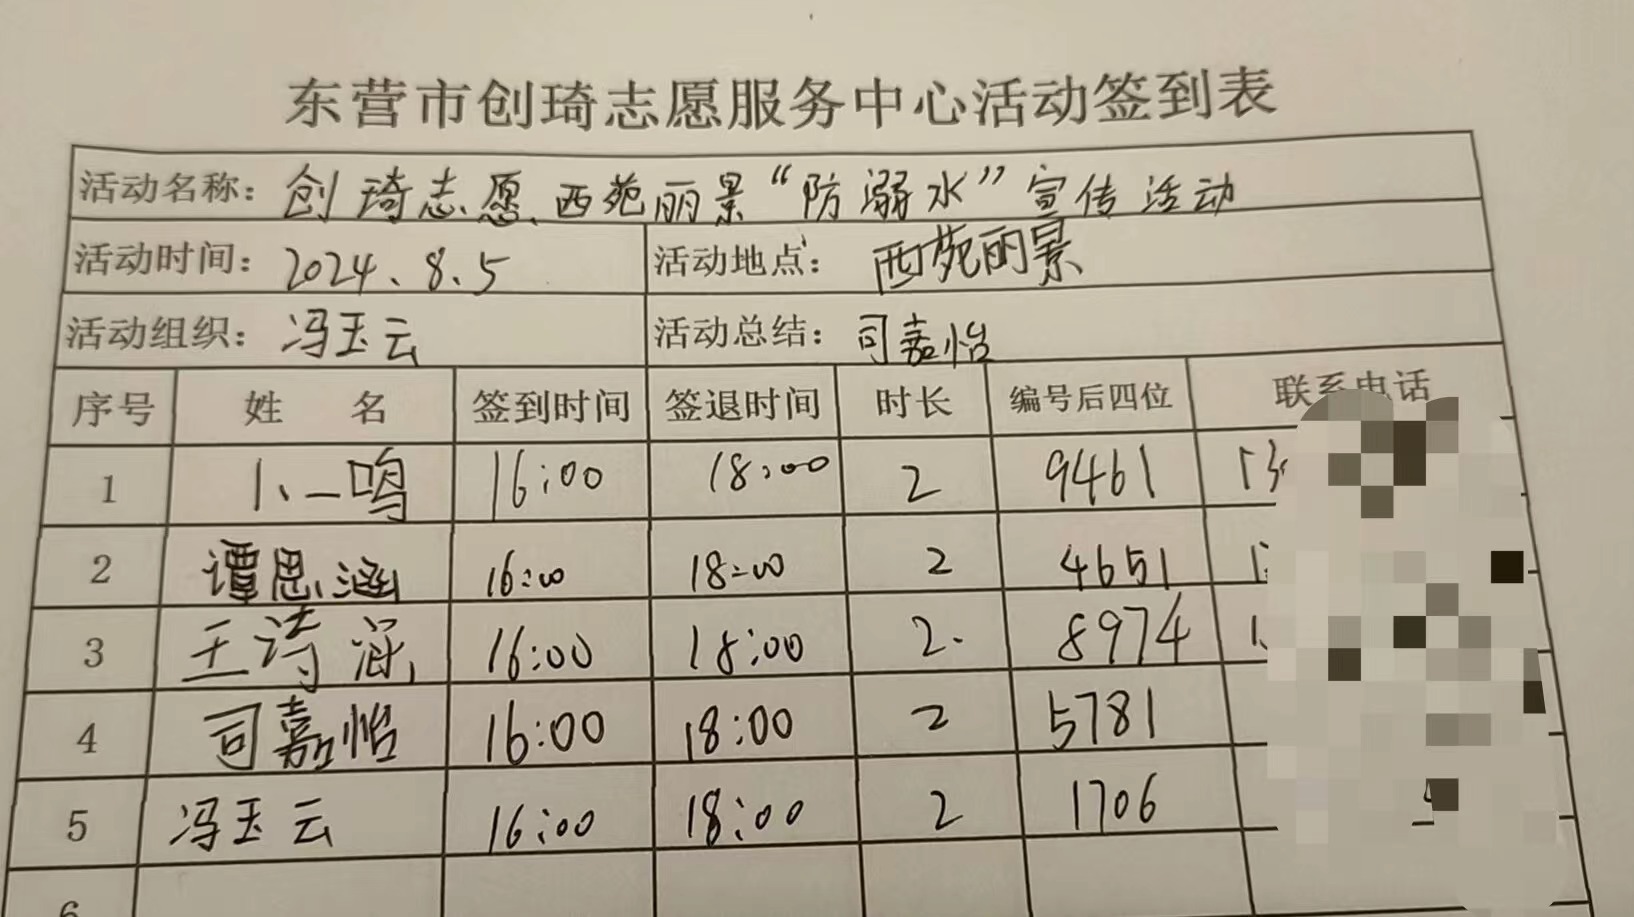 东营市创琦志愿服务中心活动签到表
活动名称：创琦志愿、西苑丽景“防溺水”宣传活动
活动时间：2024.8.5 活动地点：西苑丽景
活动组织：冯玉云 活动总结：司嘉怡
序号 姓名 签到时间 签退时间 时长 编号后四位 联系电话
1 卜一鸣 16:00 18:00 2 9461
2 谭思涵 16:00 18:00 2 4651
3 王诗涵 16:00 18:00 2 8974
4 司嘉怡 16:00 18:00 2 5781
5 冯玉云 16:00 18:00 2 1706
6